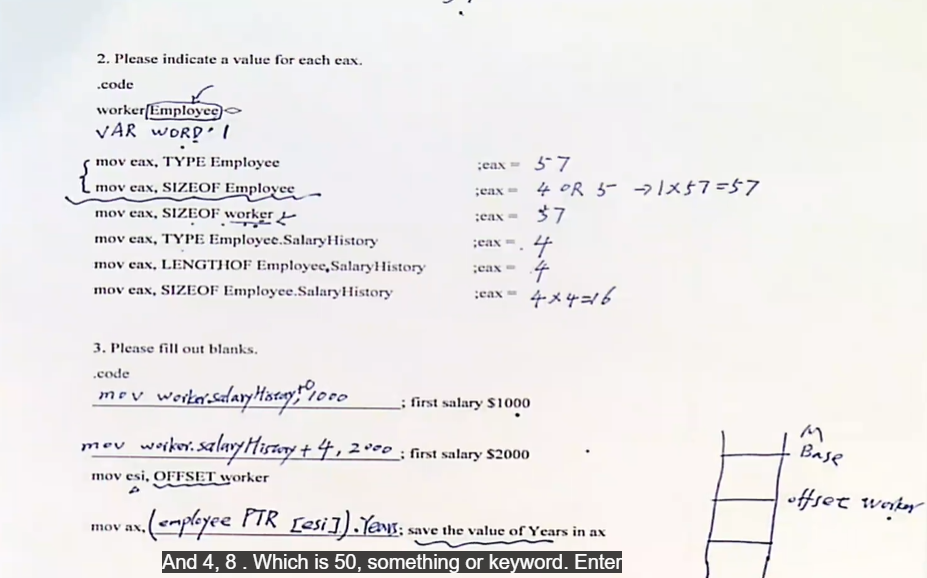 2. Please indicate a value for each eax.
.code
worker Employee <>
VAR WORD' 1
mov eax, TYPE Employee ;eax = 57
mov eax, SIZEOF Employee ;eax = 4 OR 5 → 1x57=57
mov eax, SIZEOF worker ;eax = 57
mov eax, TYPE Employee.SalaryHistory ;eax = . 4
mov eax, LENGTHOF Employee.SalaryHistory ;eax = .4
mov eax, SIZEOF Employee.SalaryHistory ;eax = 4x4=16
3. Please fill out blanks.
.code
mov worker.salaryHistory+0, 1000 ; first salary $1000
mov worker.salaryHistory + 4, 2000 ; first salary $2000
mov esi, OFFSET worker
mov ax, (employee PTR [esi]).Years; save the value of Years in ax
M
Base
offset worker
And 4, 8 . Which is 50, something or keyword. Enter